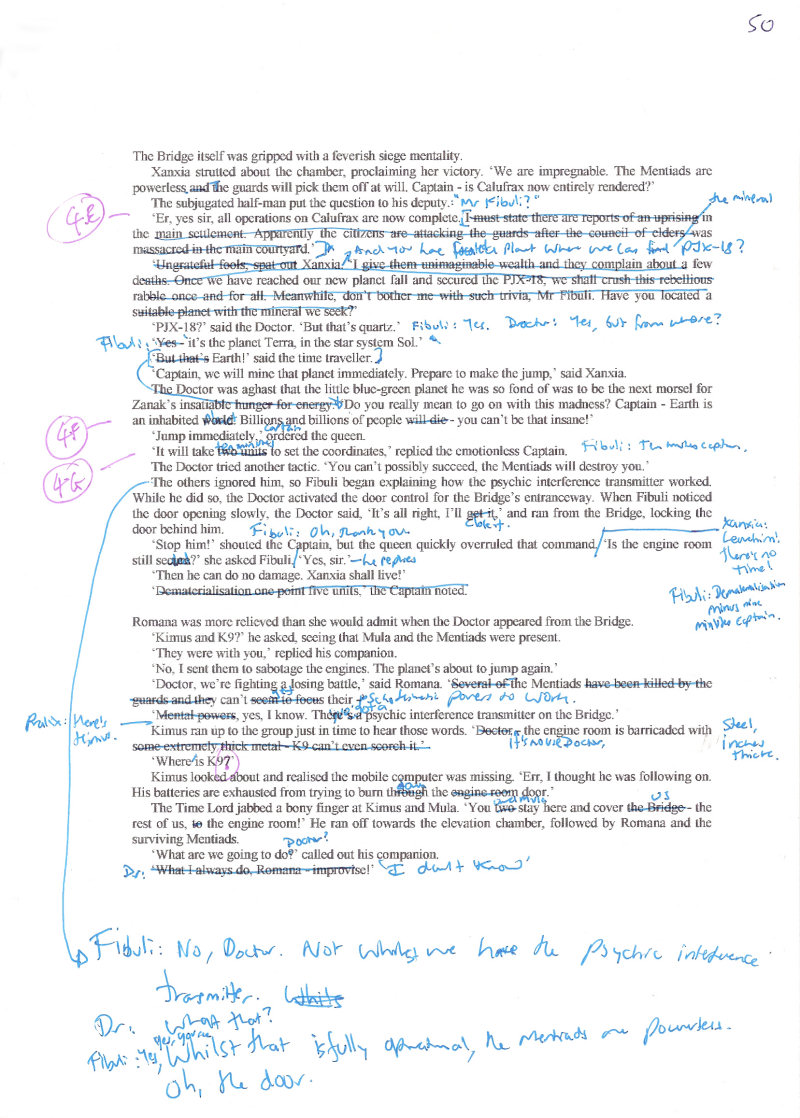 50
The Bridge itself was gripped with a feverish siege mentality.
Xanxia strutted about the chamber, proclaiming her victory. 'We are impregnable. The Mentiads are
powerless and the guards will pick them off at will. Captain - is Calufrax now entirely rendered?'
The subjugated half-man put the question to his deputy. "Mr Fibuli?"
the mineral
4E
'Er, yes sir, all operations on Calufrax are now complete. I must state there are reports of an uprising in
the main settlement. Apparently the citizens are attacking the guards after the council of elders was
massacred in the main courtyard.' And you have located a planet where we can find PJX-18?
'Ungrateful fools, spat out Xanxia. 'I give them unimaginable wealth and they complain about a few
deaths. Once we have reached our new planet fall and secured the PJX-18, we shall crush this rebellious
rabble once and for all. Meanwhile, don't bother me with such trivia, Mr Fibuli. Have you located a
suitable planet with the mineral we seek?'
'PJX-18?' said the Doctor. 'But that's quartz.' Fibuli: Yes. Doctor: Yes, but from where?
Fibuli: 'Yes - it's the planet Terra, in the star system Sol.'
'But that's Earth!' said the time traveller.
'Captain, we will mine that planet immediately. Prepare to make the jump,' said Xanxia.
The Doctor was aghast that the little blue-green planet he was so fond of was to be the next morsel for
Zanak's insatiable hunger for energy. Do you really mean to go on with this madness? Captain - Earth is
4F
an inhabited world! Billions and billions of people will die - you can't be that insane!'
'Jump immediately,' captain ordered the queen.
'It will take two units ten minutes to set the coordinates,' replied the emotionless Captain. Fibuli: Ten minutes captain.
4G
The Doctor tried another tactic. 'You can't possibly succeed, the Mentiads will destroy you.'
The others ignored him, so Fibuli began explaining how the psychic interference transmitter worked.
While he did so, the Doctor activated the door control for the Bridge's entranceway. When Fibuli noticed
the door opening slowly, the Doctor said, 'It's all right, I'll get it,' and ran from the Bridge, locking the
door behind him. Fibuli: Oh, thank you close it.
'Stop him!' shouted the Captain, but the queen quickly overruled that command. 'Is the engine room
still sealed?' she asked Fibuli. 'Yes, sir.' - he replies
Xanxia:
Leave him!
There's no
time!
'Then he can do no damage. Xanxia shall live!'
'Dematerialisation one point five units,' the Captain noted.
Fibuli: Dematerialisation
minus nine
minutes captain.
Romana was more relieved than she would admit when the Doctor appeared from the Bridge.
'Kimus and K9?' he asked, seeing that Mula and the Mentiads were present.
'They were with you,' replied his companion.
'No, I sent them to sabotage the engines. The planet's about to jump again.'
'Doctor, we're fighting a losing battle,' said Romana. 'Several of The Mentiads have been killed by the
guards and they can't seem to focus get their psychokinetic powers to work.
'Mental powers, yes, I know. There's a psychic interference transmitter on the Bridge.'
Pralix: Here's
Kimus.
Kimus ran up to the group just in time to hear those words. 'Doctor, the engine room is barricaded with
some extremely thick metal - K9 can't even scorch it.' it's no use Doctor,
Steel,
inches
thick.
'Where is K9?'
Kimus looked about and realised the mobile computer was missing. 'Err, I thought he was following on.
His batteries are exhausted from trying to burn through the engine room door.'
The Time Lord jabbed a bony finger at Kimus and Mula. 'You two and Mula stay here and cover the Bridge us - the
rest of us, to the engine room!' He ran off towards the elevation chamber, followed by Romana and the
surviving Mentiads.
'What are we going to do Doctor?' called out his companion.
Dr: 'What I always do, Romana - improvise!' 'I don't know'
Fibuli: No, Doctor. Not whilst we have the psychic interference
transmitter. Whils
Dr: What that?
Fibuli: Yes, Whilst that is fully operational, the mentiads are powerless.
Oh, the door.